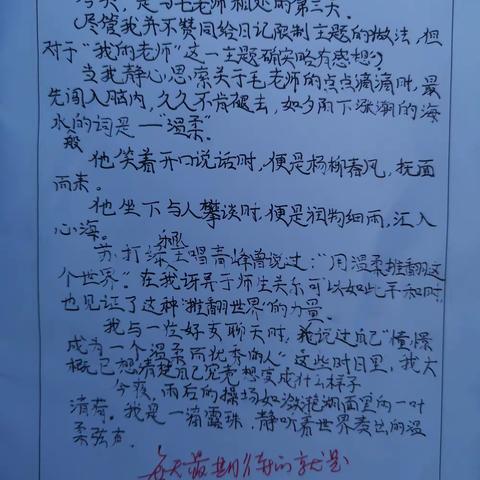 今天，是与毛老师相处的第三天。
尽管我并不赞同给日记限制主题的做法，但
对于“我的老师”这一主题确实略有感想。
当我静心思索关于毛老师的点点滴滴时，最
先闯入脑内，久久不肯褪去，如夕阳下涨潮的海
水般的词是—“温柔”。
他笑着开口说话时，便是杨柳春风，抚面
而来。
他坐下与人攀谈时，便是润物细雨，汇入
心海。
苏打绿主唱青峰曾说过：“用温柔推翻这
个世界”。在我讶异于师生关系可以如此平和时，
也见证了这种“推翻世界”的力量。
我与一位好友聊天时，我说过自己“憧憬
成为一个温柔而优秀的人”这些时日里，我大
概已想清楚自己究竟想变成什么样子
今夜，雨后的操场如湖面里的一叶
清荷。我是一滴露珠，静听着世界奏出的温
柔弦音。
每天最期待的就是